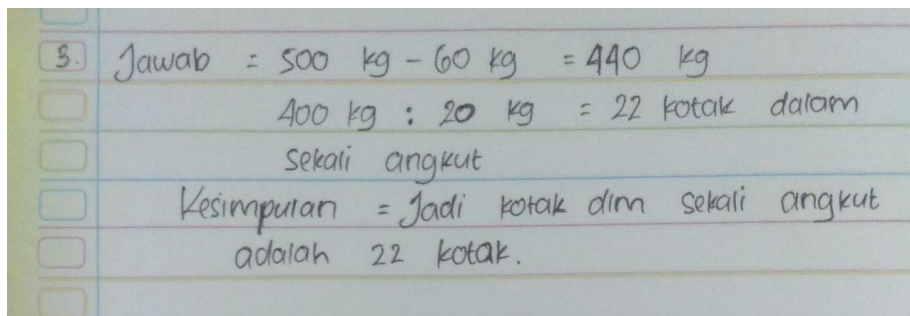 3. Jawab = 500 kg - 60 kg = 440 kg
400 kg : 20 kg = 22 kotak dalam
sekali angkut
Kesimpulan = Jadi kotak dlm sekali angkut
adalah 22 kotak.